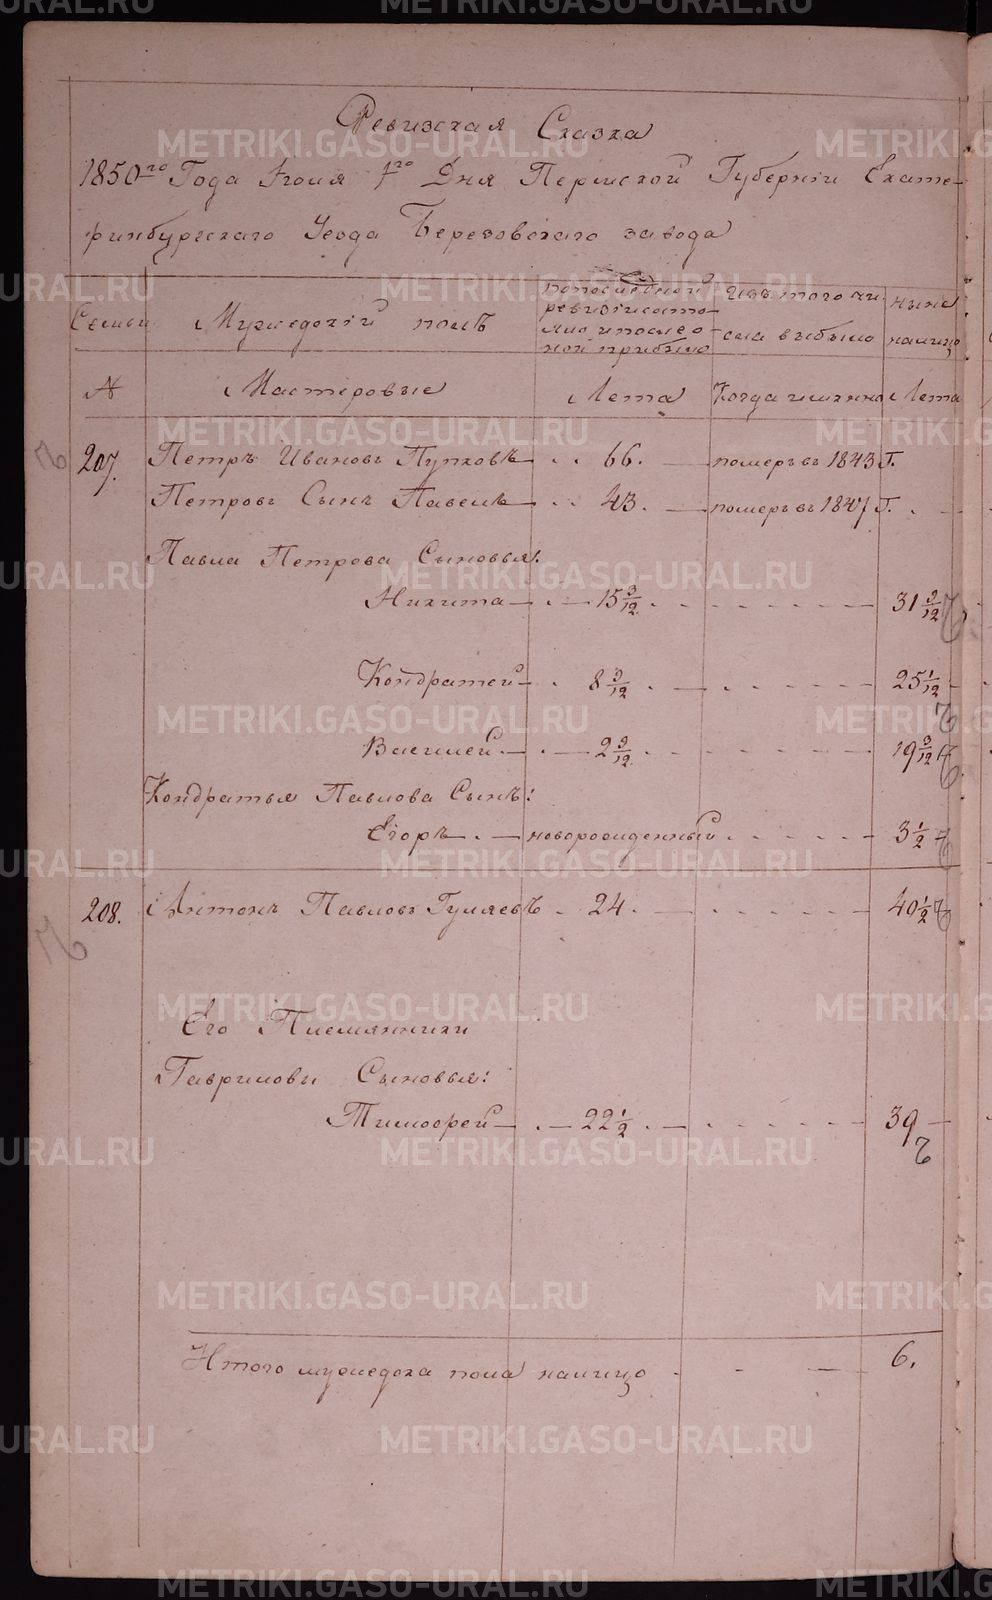 Ревизская Сказка
1850го Года Июля 1го Дня Пермской Губерніи Екате-
ринбургскаго Уезда Березовскаго завода
Семьи
Мужедскій полъ
попоследней
ревизіисато-
яло ипосле о-
ной прибыло
Изъ того чи
сла выбыло
ныне
налицо
№
Мастеровые
Лета
Когда имянно
Лета
207. Петръ Ивановъ Пупковъ 66. померъ въ 1843 Г.
Петровъ Сынъ Павелъ 43. померъ въ 1847 Г.
Павла Петрова Сыновья:
Никита 15 3/12 31 9/12
Кондратей 8 9/12 25 1/12
Василей 2 9/12 19 3/12
Кондратья Павлова Сынъ:
Егоръ новорожденный 3 1/2
208. Антонъ Павловъ Гуляевъ 24. 40 1/2
Его Племянники
Гавриловы Сыновья:
Тимофей 22 1/2 39
Итого мужедска пола налицо 6.
METRIKI.GASO-URAL.RU